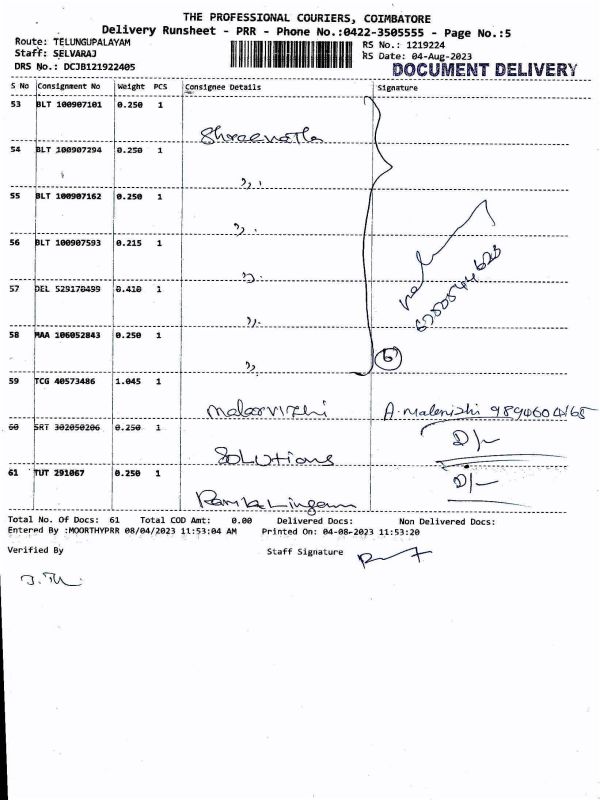 THE PROFESSIONAL COURIERS, COIMBATORE
Delivery Runsheet - PRR - Phone No.:0422-3505555 - Page No.:5
Route: TELUNGUPALAYAM
RS No.: 1219224
Staff: SELVARAJ
RS Date: 04-Aug-2023
DRS No.: DCJB121922405
DOCUMENT DELIVERY
S No Consignment No Weight PCS Consignee Details Signature
53 BLT 100907101 0.250 1
54 BLT 100907294 0.250 1
,, .
55 BLT 100907162 0.250 1
,, .
56 BLT 100907593 0.215 1
,, .
57 DEL 529170499 0.410 1
,, .
58 MAA 106052843 0.250 1
,, 6
59 TCG 40573486 1.045 1
Malarvizhi A. Malarvizhi 9894604165
60 SRT 302050206 0.250 1 D/-
Solutions
61 TUT 291067 0.250 1 D/-
Total No. Of Docs: 61 Total COD Amt: 0.00 Delivered Docs: Non Delivered Docs:
Entered By :MOORTHYPRR 08/04/2023 11:53:04 AM Printed On: 04-08-2023 11:53:20
Verified By Staff Signature